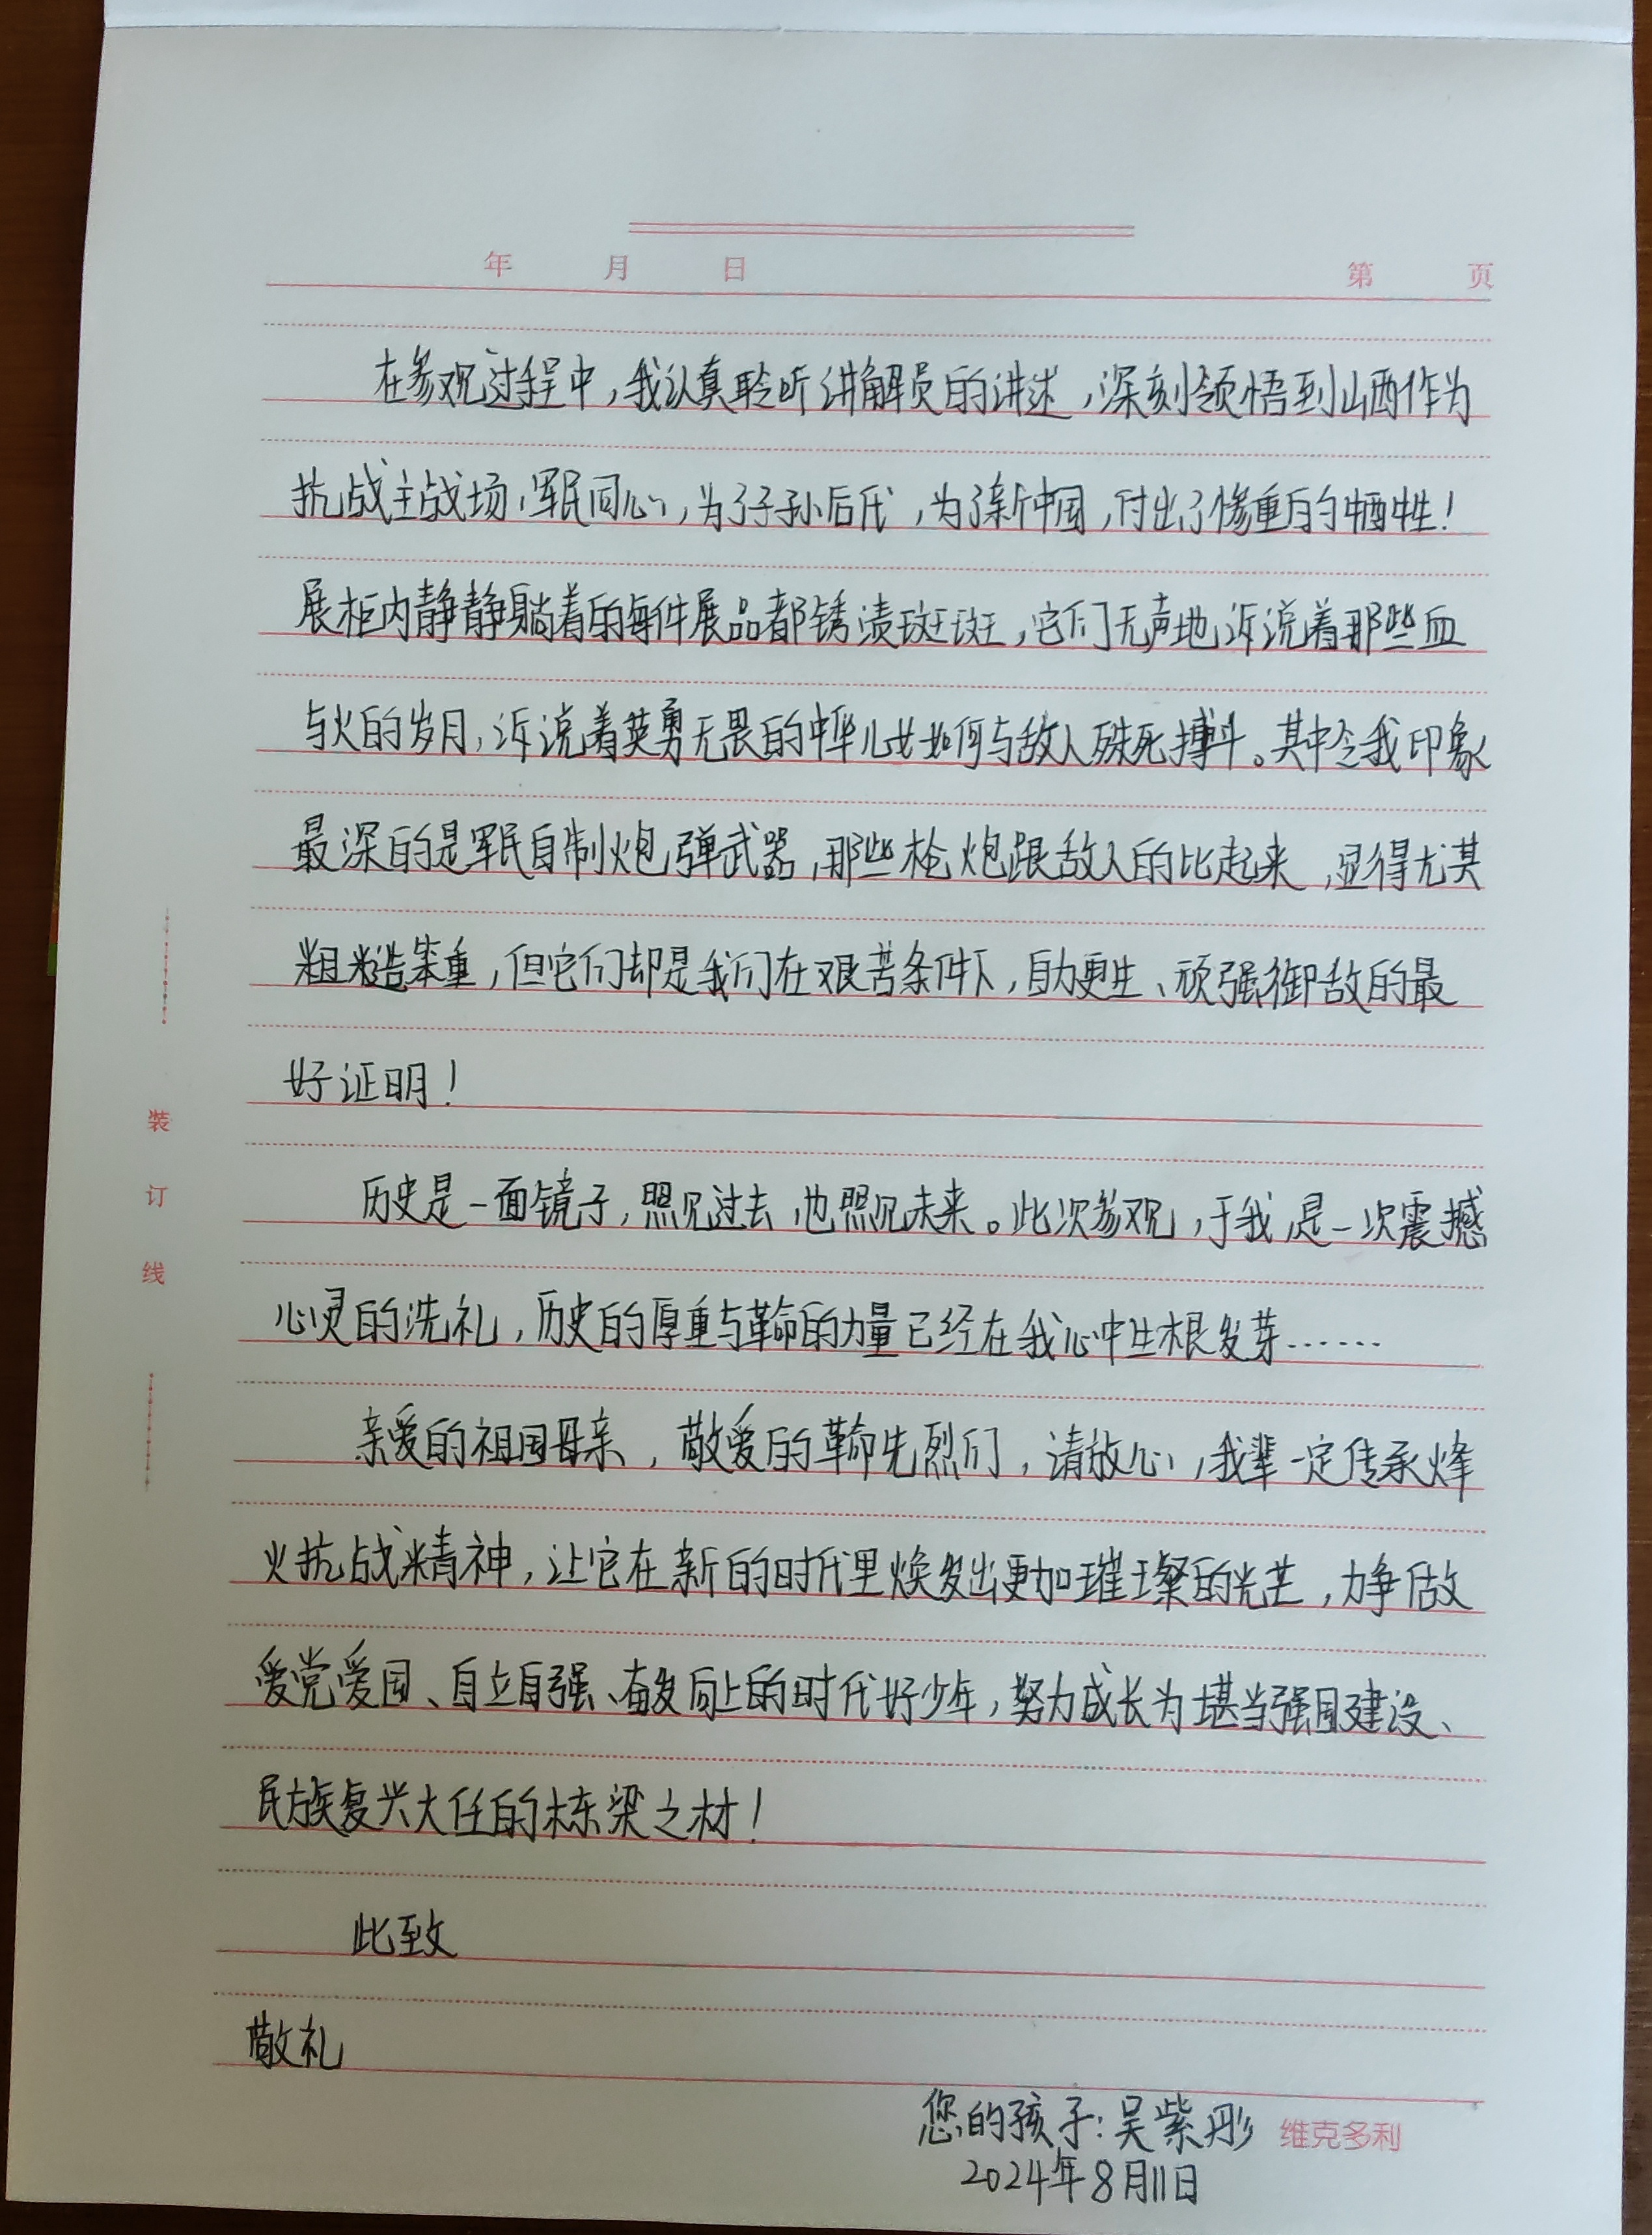 年 月 日 第 页
在参观过程中,我认真聆听讲解员的讲述,深刻领悟到山西作为
抗战主战场,军民同心,为了子孙后代,为了新中国,付出了惨重的牺牲!
展柜内静静躺着的每件展品都锈渍斑斑,它们无声地诉说着那些血
与火的岁月,诉说着英勇无畏的中华儿女如何与敌人殊死搏斗。其中令我印象
最深的是军民自制炮弹武器,那些枪炮跟敌人的比起来,显得尤其
粗糙笨重,但它们却是我们在艰苦条件下,自力更生、顽强御敌的最
好证明!
历史是一面镜子,照见过去,也照见未来。此次参观,于我,是一次震撼
心灵的洗礼,历史的厚重与革命的力量已经在我心中生根发芽……
亲爱的祖国母亲,敬爱的革命先烈们,请放心,我辈一定传承烽
火抗战精神,让它在新的时代里焕发出更加璀璨的光芒,力争做
爱党爱国、自立自强、奋发向上的时代好少年,努力成长为堪当强国建设、
民族复兴大任的栋梁之材!
此致
敬礼
您的孩子:吴紫彤
2024年8月11日
维克多利
装订线